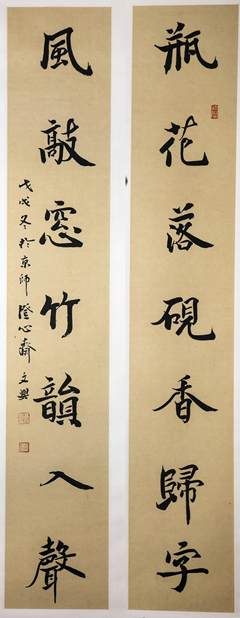 瓶花落硯香歸字
風敲窓竹韻入聲
戊戌冬於京師澄心齋文興